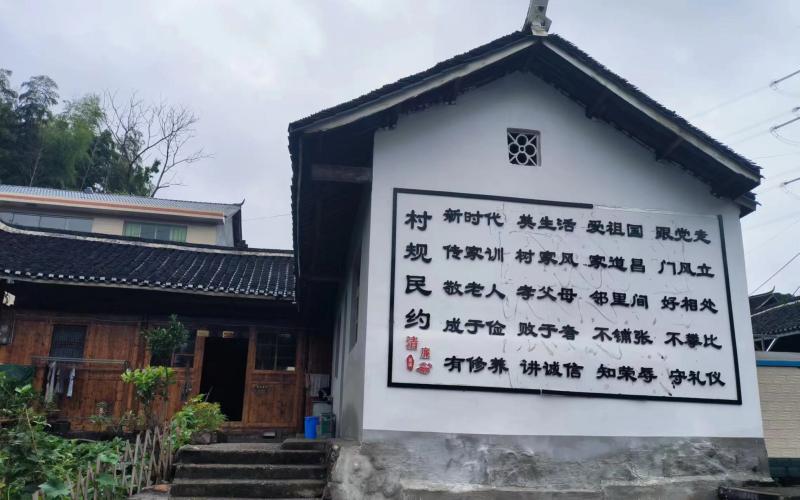 村规民约
清廉
新时代 美生活 爱祖国 跟党走
传家训 村家风 家道昌 门风立
敬老人 孝父母 邻里间 好相处
成于俭 败于奢 不铺张 不攀比
有修养 讲诚信 知荣辱 守礼仪